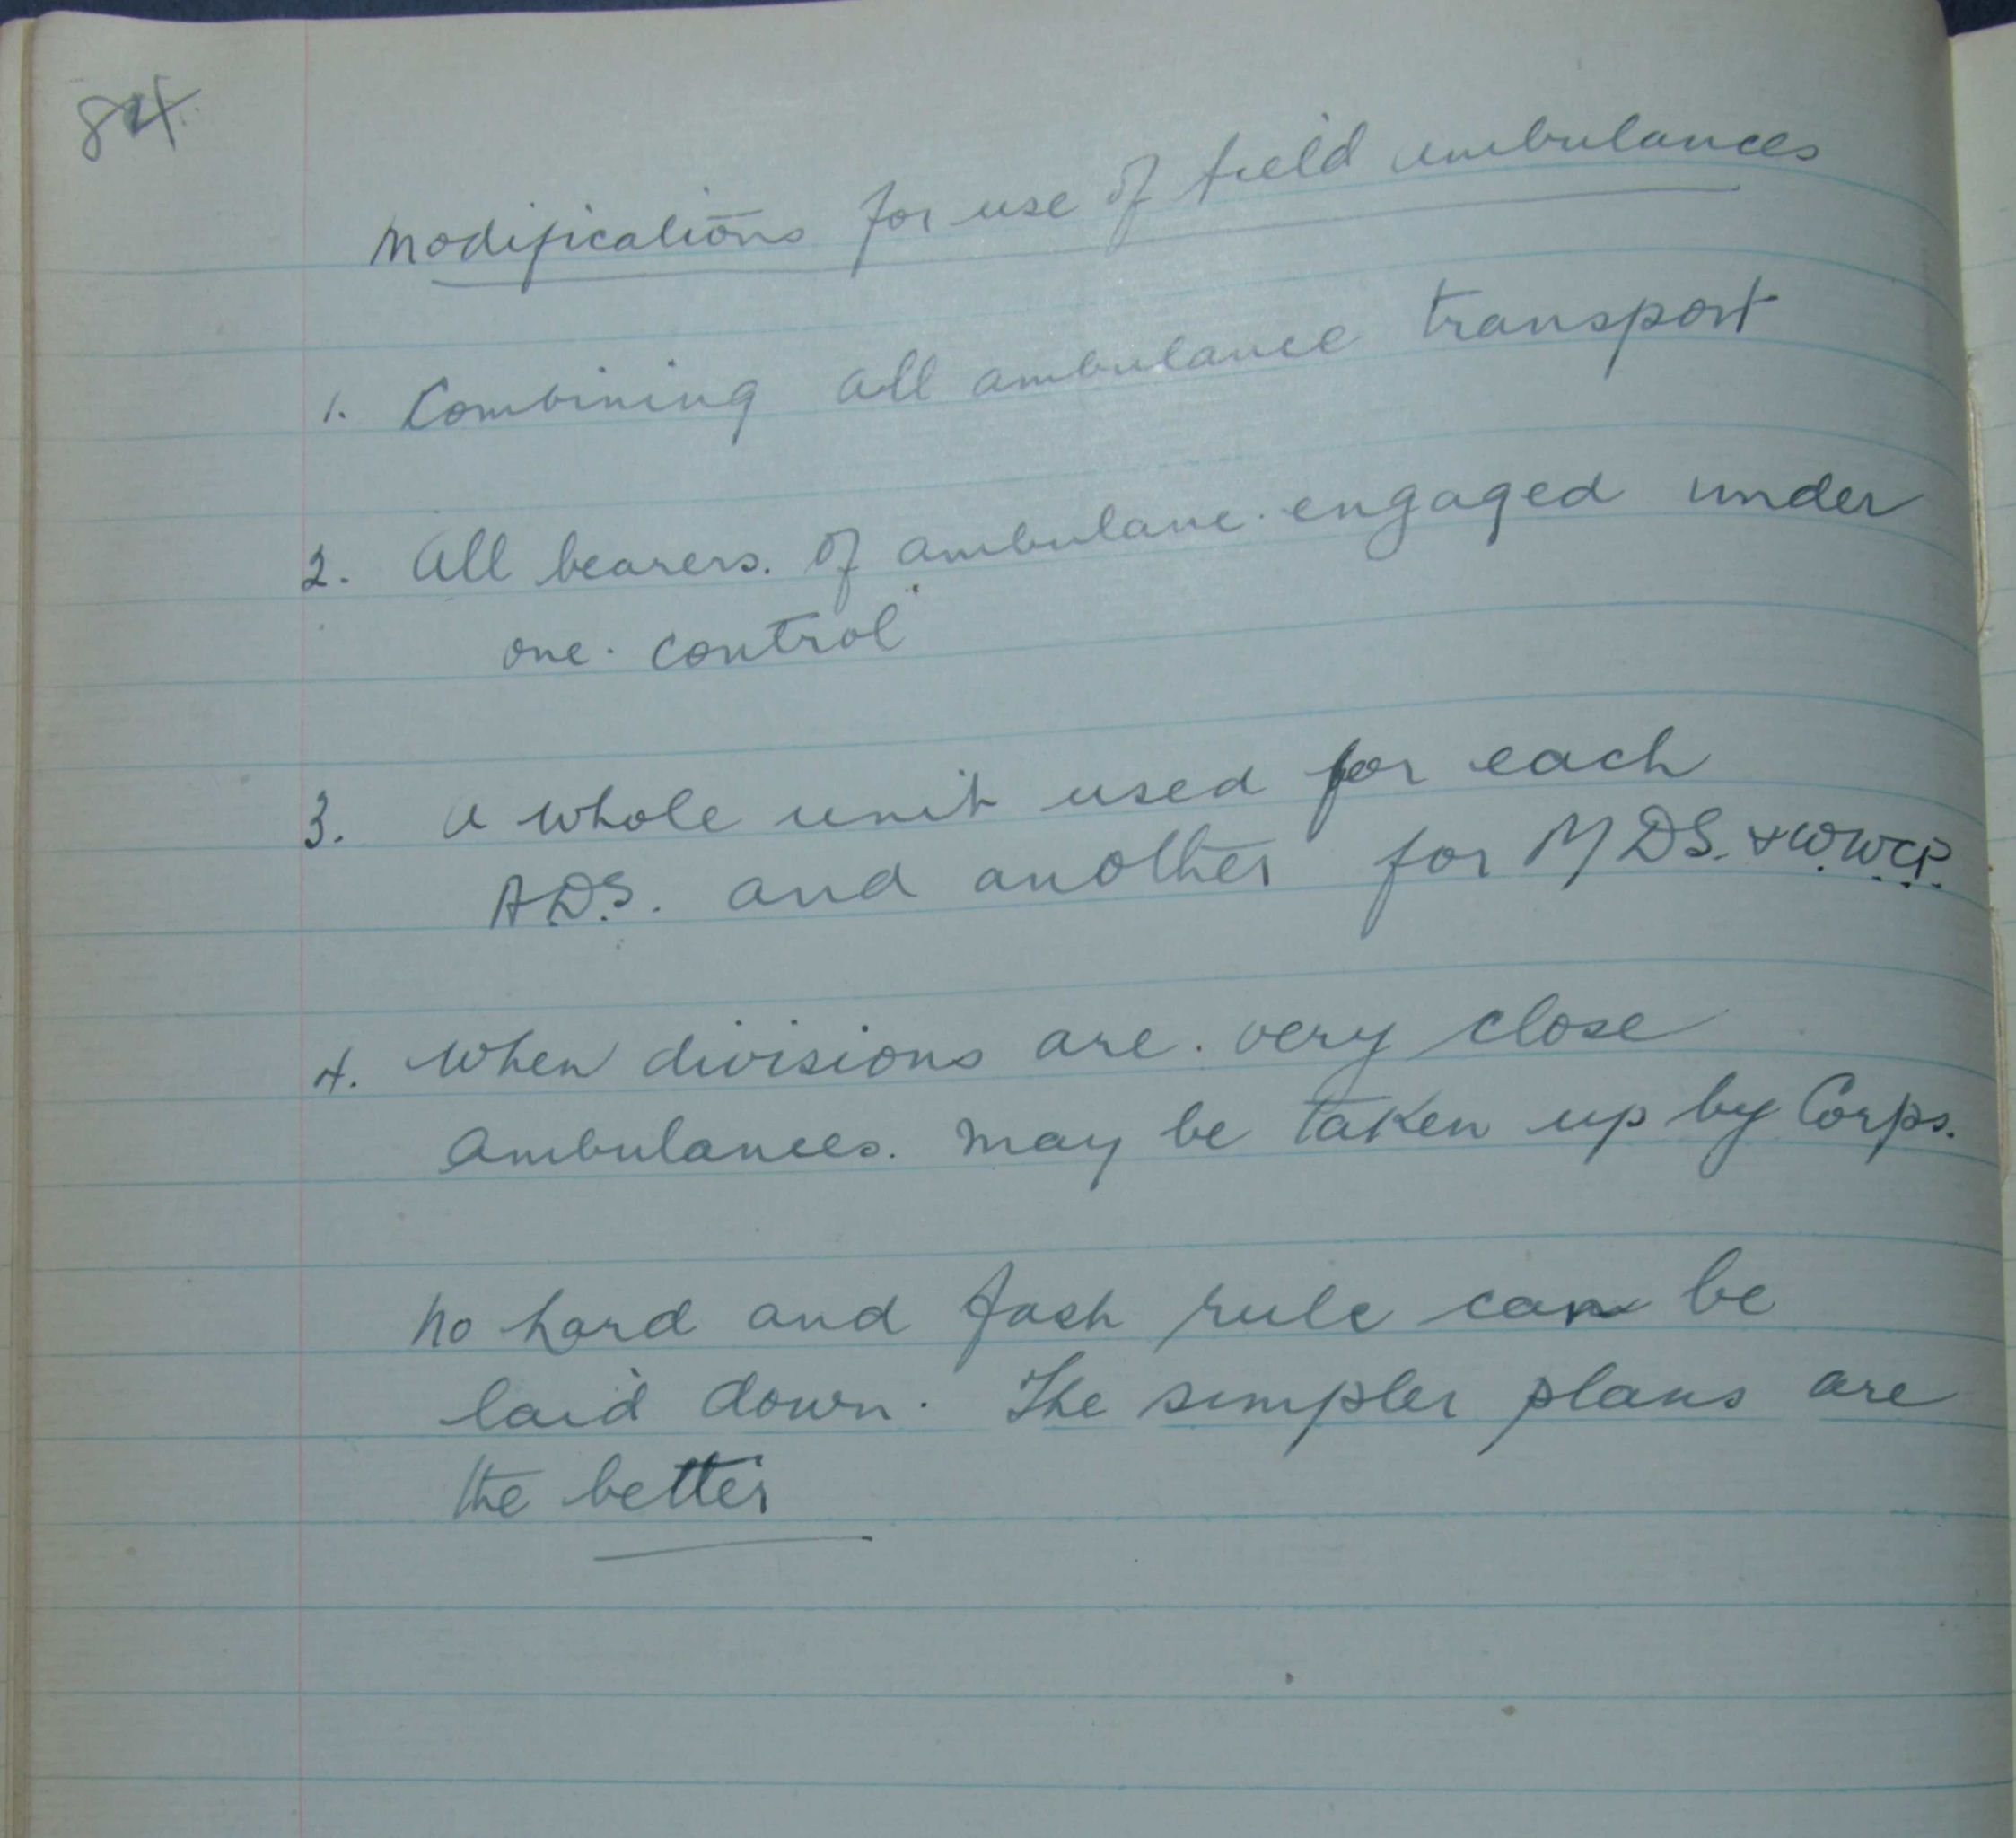 84
Modifications for use of field ambulances
1. Combining all ambulance transport
2. All bearers. of ambulance engaged under
one control
3. A whole unit used for each
A.D.S. and another for MDS. & W.W.C.P.
4. When divisions are very close
Ambulances. may be taken up by Corps.
No hard and fast rule can be
laid down. The simpler plans are
the better